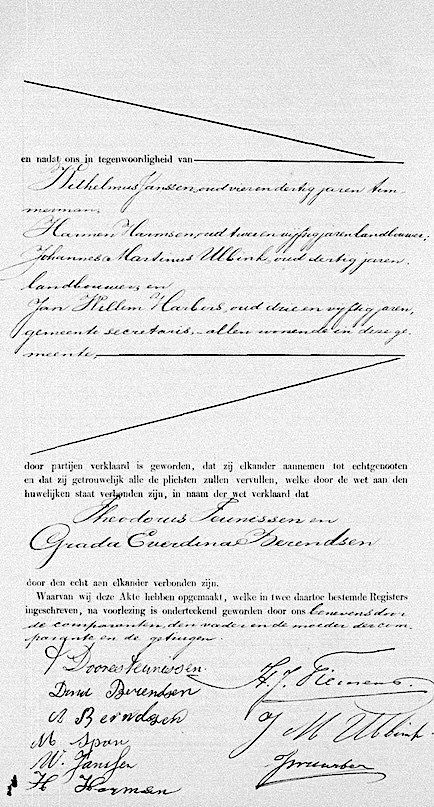 en nadat ons in tegenwoordigheid van
Wilhelmus Janssen, oud vier en dertig jaren tim-
merman,
Harmen Harmsen, oud twee en vijftig jaren landbouwer;
Johannes Martinus Ubbink, oud dertig jaren,
landbouwer, en
Jan Willem Harbers, oud drie en vijftig jaren,
gemeente secretaris, allen wonende in deze ge-
meente,
door partijen verklaard is geworden, dat zij elkander aannemen tot echtgenooten
en dat zij getrouwelijk alle de plichten zullen vervullen, welke door de wet aan den
huwelijken staat verbonden zijn, in naam der wet verklaard dat
Theodorus Teunissen en
Grada Everdina Berendsen
door den echt aen elkander verbonden zijn.
Waarvan wij deze Akte hebben opgemaakt, welke in twee daartoe bestemde Registers
ingeschreven, na voorlezing is onderteekend geworden door ons benevens door
de comparanten, den vader en de moeder der com-
parante en de getuigen.
Doores Teunissen
Berendsen
A Berndsen
M Span
W. Janssen
H Harmsen
J M Ubbink